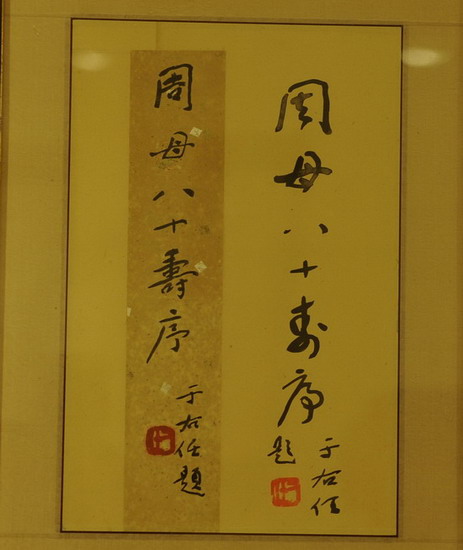 周母八十寿序
于右任
題
周母八十壽序
于右任題